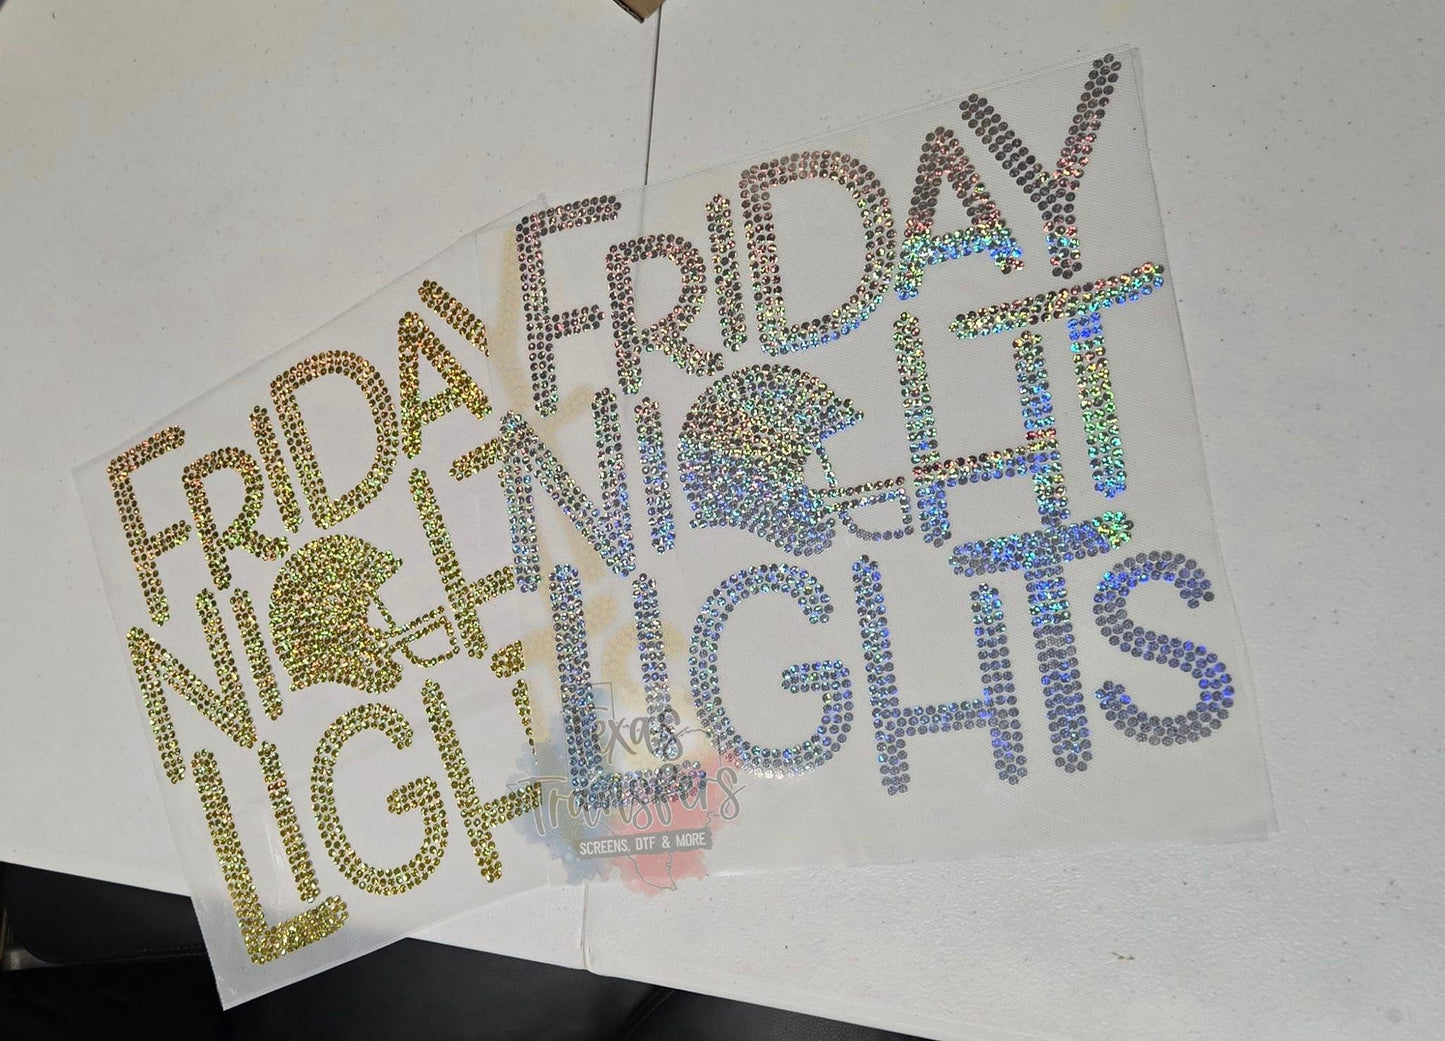 FRIDAY
NI H
LIGH
FRIDAY
NI HT
LIGHTS
Texas
Transfers
SCREENS, DTF & MORE